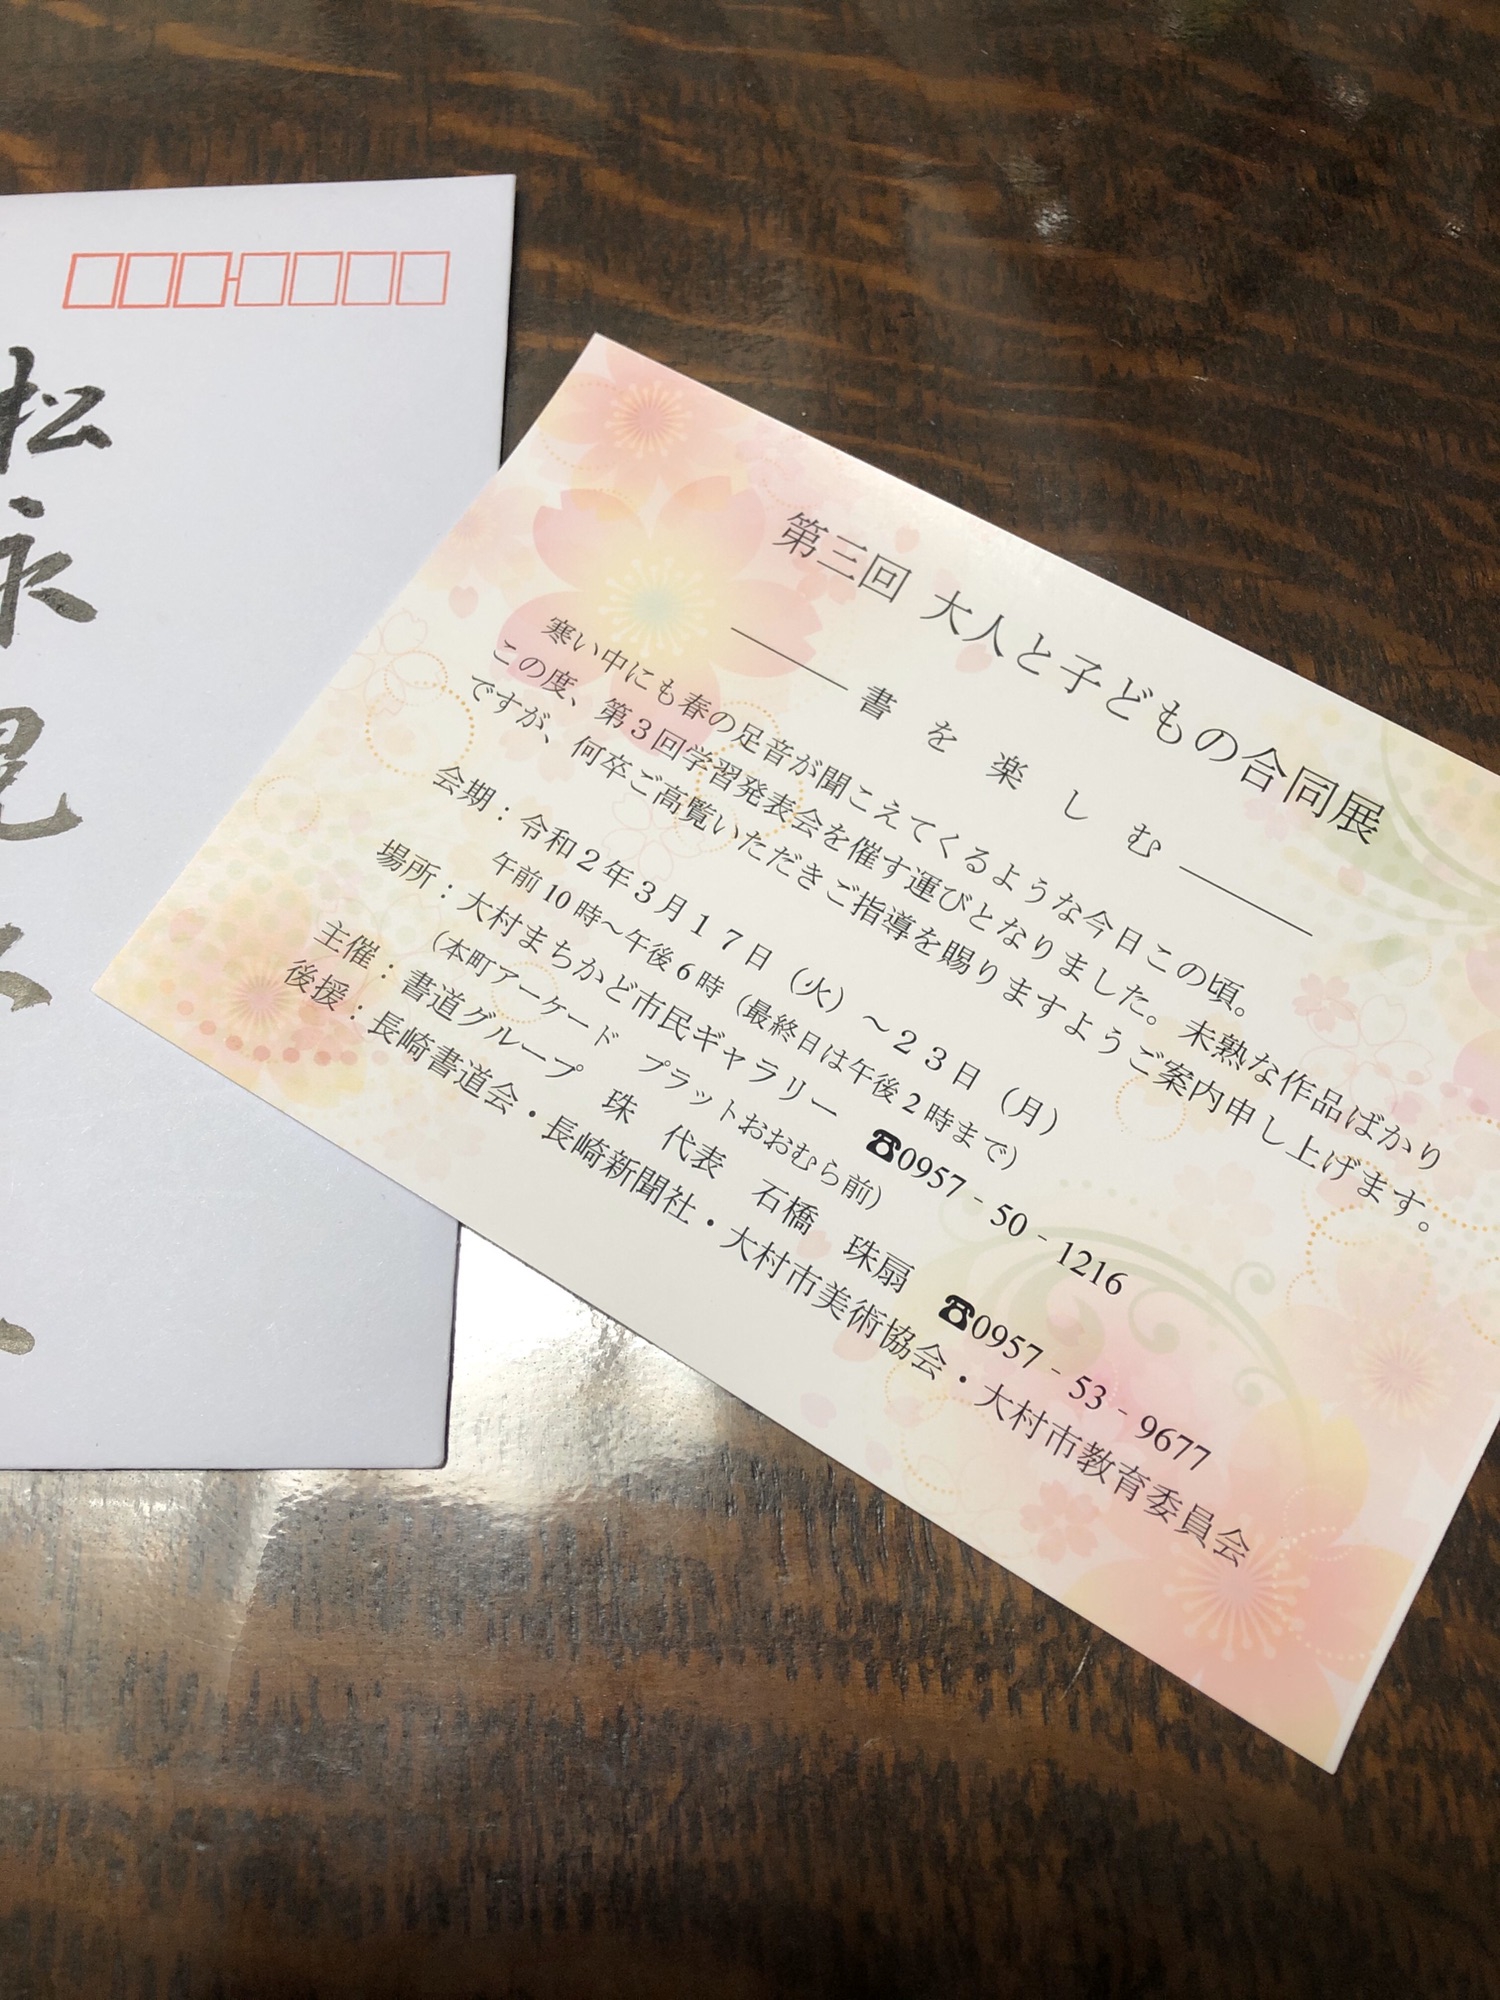 松永
第三回 大人と子どもの合同展
書を楽しむ
寒い中にも春の足音が聞こえてくるような今日この頃。
この度、第3回学習発表会を催す運びとなりました。未熟な作品ばかり
ですが、何卒ご高覧いただきご指導を賜りますようご案内申し上げます。
会期：令和２年３月１７日（火）～２３日（月）
午前10時～午後6時（最終日は午後2時まで）
場所：大村まちかど市民ギャラリー ☎0957-50-1216
（本町アーケード プラットおおむら前）
主催：書道グループ 珠 代表 石橋 珠扇 ☎0957-53-9677
後援：長崎書道会・長崎新聞社・大村市美術協会・大村市教育委員会